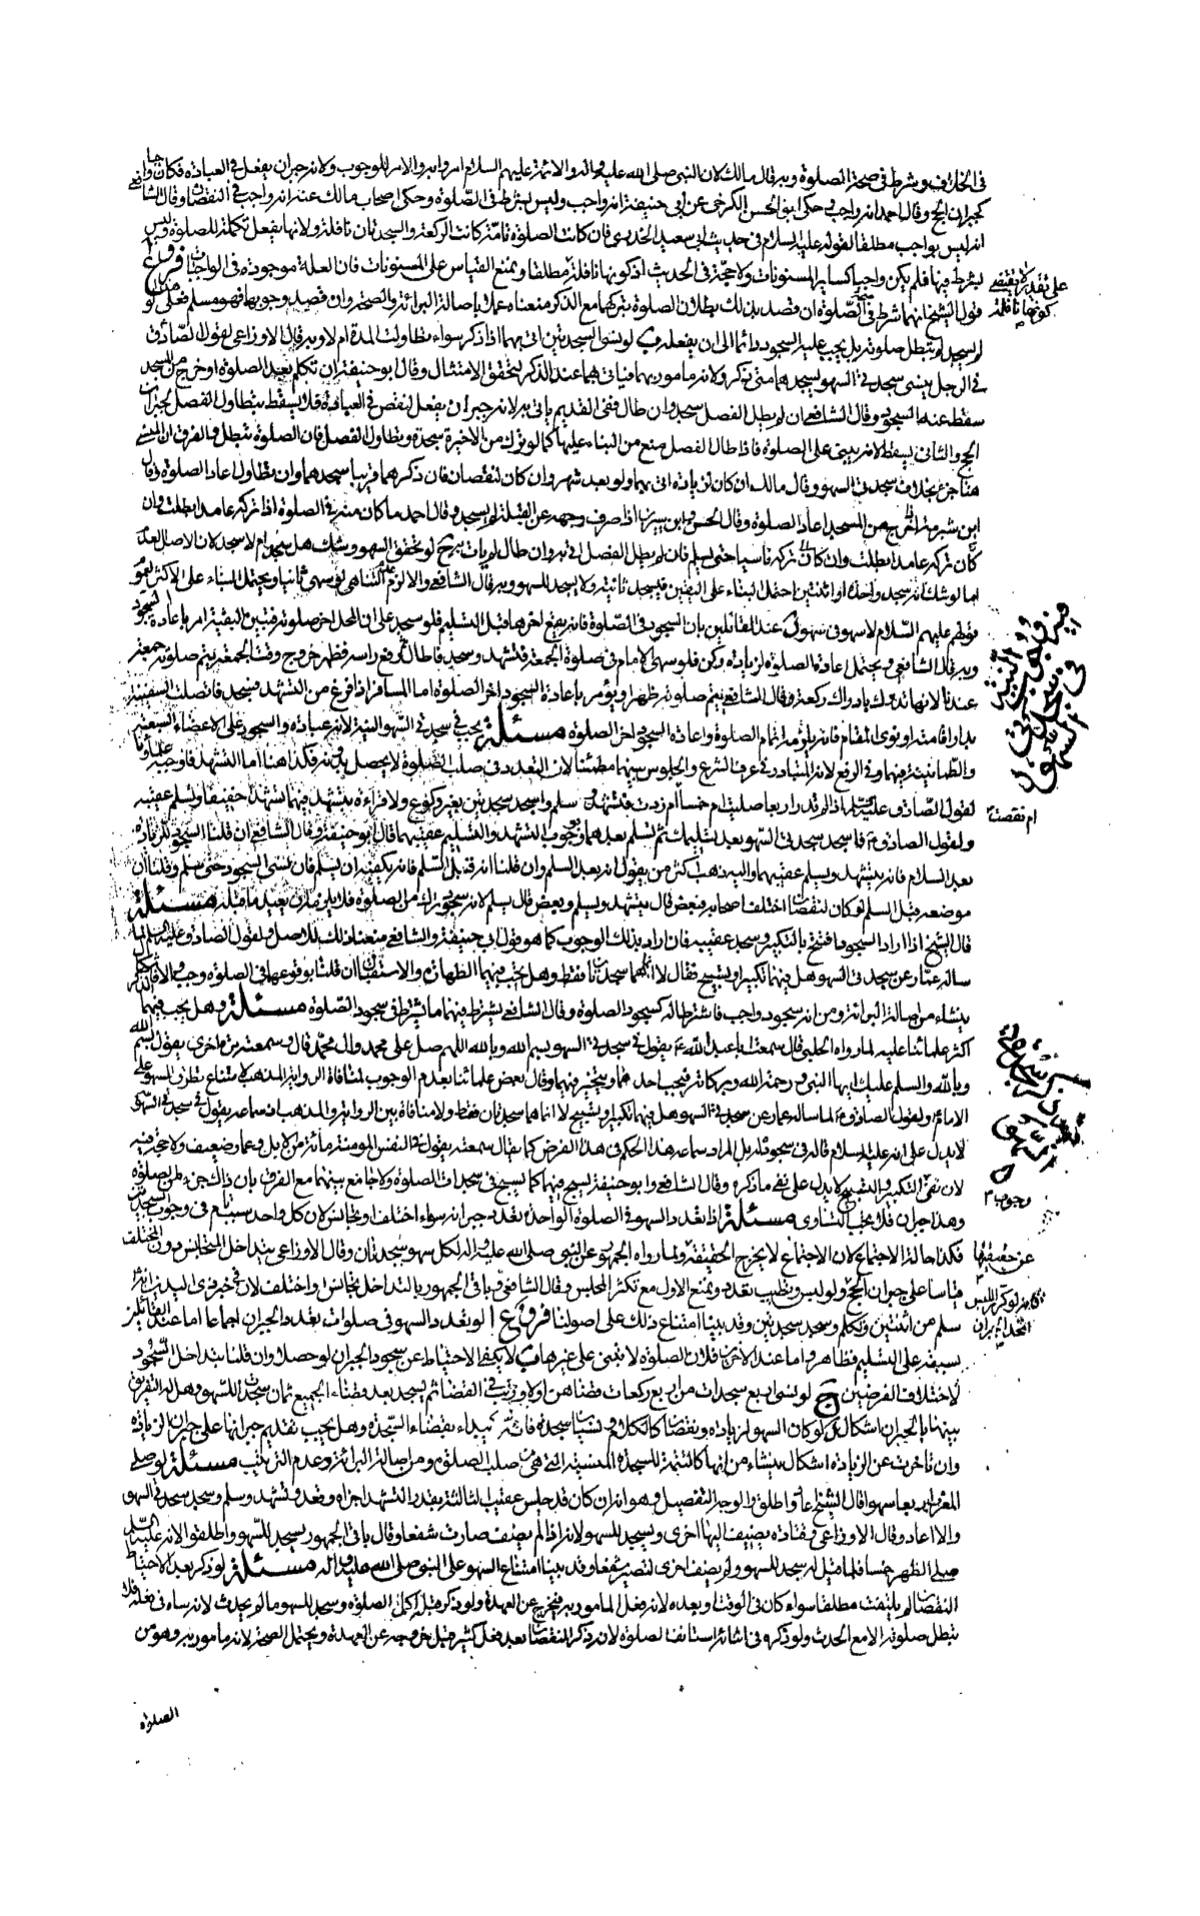 في الخلاف وشرط في صحة الصلوة وبه قال مالك لان النبي صلى الله عليه واله والائمة عليهم السلام امروا به والامر للوجوب ولانه جبران يفعل في العبادة فكان واجبا
كجبران الحج وقال احمد انه واجب وحكى ابو الحسن الكرخي عن ابي حنيفة انه واجب وليس بشرط في الصلوة وحكى اصحاب مالك عنه انه واجب في النقصان وقال الشافعي
انه ليس بواجب مطلقا لقوله عليه السلام في حديث ابي سعيد الخدري فان كانت الصلوة تامة كانت الركعة والسجدتان نافلة ولانها يفعل تكملة للصلوة وليس
بشرط فيها فلم يكن واجبا كساير المسنونات ولا حجة في الحديث اذ كونها نافلة مطلقا ونمنع القياس على المسنونات فان العلة موجودة في الواجبات فروع ا
قول الشيخ انهما شرط في صحة الصلوة ان قصد بذلك بطلان الصلوة بتركهما مع الذكر منعناه عملا باصالة البرائة والصحة وان قصد وجوبهما فهو مسلم فعلى هذا لو
لم يسجد لم يبطل صلوته بل يجب عليه السجود دائما الى ان يفعله ب لو نسي السجدتين اتى بهما اذا ذكر سواء تطاولت المدة ام لا وبه قال الاوزاعي لقول الصادق
في الرجل ينسى سجدتي السهو يسجدهما متى ذكر ولانه مامور بهما فياتي بهما عند الذكر ليتحقق الامتثال وقال ابو حنيفة ان تكلم بعد الصلوة او خرج من المسجد
سقط عنه السجود وقال الشافعي ان لم يطل الفصل سجد وان طال ففي القديم ياتي به لانه جبران يفعل لنقص في العبادة فلا يسقط بتطاول الفصل كجبران
الحج والثاني يسقط لانه يبنى على الصلوة فاذا طال الفصل منع من البناء عليها كما لو ترك من الاخيرة سجدة وتطاول الفصل فان الصلوة تبطل والفرق ان المنسي
هنا جزء بخلاف سجدتي السهو وقال مالك ان كان لزيادة اتى بهما ولو بعد شهر وان كان لنقصان فان ذكرهما قريبا سجدهما وان تطاول اعاد الصلوة وقال
ابن شبرمة اذا خرج من المسجد اعاد الصلوة وقال الحسن وابن سيرين اذا صرف وجهه عن القبلة لم يسجد وقال احمد ما كان منه في الصلوة اذا تركه عامدا بطلت وان
كان تركه عامدا بطلت وان كان تركه ناسيا حتى يسلم فان لم يطل الفصل اتى به وان طال لم يات به ج لو تحقق السهو وشك هل سجد ام لا سجد لان الاصل العدم
اما لو شك انه سجد واحدة او اثنتين احتمل البناء على اليقين فيسجد ثانية ولا يسجد للسهو وبه قال الشافعي والا لزم عدم التناهي لو سهى ثانيا ويحتمل البناء على الاكثر لعموم
قولهم عليهم السلام لا سهو في سهو د عند القائلين بان السجود في الصلوة فانه يقع اخرها قبل التسليم فلو سجد على ان المحل اخر صلوته فتبين البقية امر باعادة السجود
وبه قال الشافعي ويحتمل اعادة الصلوة لزيادة ركن فلو سهى الامام في صلوة الجمعة فتشهد وسجد فاطال ثم رفع راسه فظهر خروج وقت الجمعة يتم صلوته جمعة
عندنا لانها تدرك بادراك ركعة وقال الشافعي يتم صلوته ظهرا ويؤمر باعادة السجود اخر الصلوة اما المسافر اذا فرغ من التشهد فسجد فاتصلت السفينة
بدار اقامته او نوى المقام فانه يلزمه اتمام الصلوة واعادة السجود اخر الصلوة مسئلة يجب في سجدتي السهو النية لانه عبادة والسجود على الاعضاء السبعة
والطمانينة فيهما وفي الرفع لانه المتبادر في عرف الشرع والجلوس بينهما مطمئنا لان التعدد في صلب الصلوة لا يحصل بدونه فكذا هنا اما التشهد فاوجبه علماؤنا
لقول الصادق عليه السلام اذا لم تدر اربعا صليت ام خمسا ام زدت فتشهد وسلم واسجد سجدتين بغير ركوع ولا قراءة يتشهد فيهما تشهدا خفيفا ويسلم عقيبه
ولقول الصادق ع فاسجد سجدتي السهو بعد تسليمك ثم تسلم بعدهما وبوجوب التشهد والتسليم عقيبهما قال ابو حنيفة وقال الشافعي ان قلنا السجود للزيادة
بعد السلام فانه يتشهد ويسلم عقيبهما واليه ذهب كثر من يقول انه بعد السلم وان قلنا انه قبل السلم فانه يكفيه ان يسلم فان نسي السجود حتى سلم وقلنا ان
موضعه قبل السلم لو كان لنقصان اختلف اصحابه فبعض قال يتشهد ويسلم وبعض قال يسلم لانه سجود ترك من الصلوة فلا يلزمه ان يعيد ما قبله مسئلة
قال الشيخ اذا اراد السجود افتتح بالتكبير وسجد عقيبه فان اراد بذلك الوجوب كما هو قول ابي حنيفة والشافعي منعناه لذلك للاصل ولقول الصادق عليه السلم لما
ساله عمار عن سجدتي السهو هل فيهما تكبير او تسبيح فقال لا انهما سجدتان فقط وهل يجب فيهما الطهارة والاستقبال ان قلنا بوقوعها في الصلوة وجب والا فاشكال
ينشاء من اصالة البرائة ومن انه سجود واجب فاشترطا له كسجود الصلوة وقال الشافعي يشترط فيهما ما يشترط في سجود الصلوة مسئلة وهل يجب فيهما الذكر
اكثر علمائنا عليه لما رواه الحلبي قال سمعت ابا عبد الله ع يقول في سجدتي السهو بسم الله وبالله اللهم صل على محمد وال محمد قال وسمعته مرة اخرى يقول بسم الله
وبالله والسلم عليك ايها النبي ورحمة الله وبركاته فيجب احدهما ويتخير فيهما وقال بعض علمائنا بعدم الوجوب لمنافاة الرواية المذهب لامتناع تطرق السهو على
الامام ولقول الصادق ع لما ساله عمار عن سجدتي السهو هل فيهما تكبير او تسبيح لا انهما سجدتان فقط ولا منافاة بين الرواية والمذهب لان سماعه يقول في سجدتي السهو
لا يدل على انه عليه السلام قاله في سجوده بل المراد سماعه هذا الحكم في هذا الفرض كما يقال سمعته يقول في النفس المومنة مائة من الابل وعمار ضعيف ولا حجة فيه
لان نفي التكبير والتسبيح لا يدل على نفي ما ذكره وقال الشافعي وابو حنيفة يسبح فيهما كما يسبح في سجدات الصلوة ولا جامع بينهما مع الفرق بان ذلك جزء من صلوة
وهذا جبران فلا يجب التساوي مسئلة اذا تعدد السهو في الصلوة الواحدة تعدد جبرانه سواء اختلف او تجانس لان كل واحد سبب تام في وجوب السجدتين
فكذا حالة الاجتماع لان الاجتماع لا يخرج الحقيقة ولما رواه الجمهور عن النبي صلى الله عليه واله لكل سهو سجدتان وقال الاوزاعي يتداخل المتجانس دون المختلف
قياسا على جبران الحج ولو لبس وتطيب تعدد ونمنع الاول مع تكثر المجلس وقال الشافعي وباقي الجمهور بالتداخل تجانس او اختلف لان في خبر ذي اليدين انه
سلم من اثنتين وتكلم وسجد سجدتين وقد بينا امتناع ذلك على اصولنا فروع ا لو تعدد السهو في صلوات تعدد الجبران اجماعا اما عند القائلين
بسبقه على التسليم فظاهر واما عند الاخرين فلان الصلوة لا تبنى على غيرها ب لا يكفي الاحتياط عن سجود الجبران لو حصلا وان قلنا بتداخل السجود
لاختلاف الفرضين ج لو نسي اربع سجدات من اربع ركعات قضاهن اولا ورتب في القضاء ثم يسجد بعد قضاء الجميع ثمان سجدات للسهو وهل له التفريق
بينها بالجبران اشكال د لو كان السهو لزيادة ونقصان كالكلام ونسيان سجدة فانه يبداء بقضاء السجدة وهل يجب تقديم جبرانها على جبران الزيادة
وان تاخرت عن الزيادة اشكال ينشاء من انها كالتتمة للسجدة المنسية التي هي من صلب الصلوة ومن اصالة البرائة وعدم الترتيب مسئلة لو صلى
المغرب اربعا سهوا قال الشيخ اعاد واطلق والوجه التفصيل وهو انه ان كان قد جلس عقيب الثالثة بقدر التشهد اجزاه وقعد وتشهد وسلم وسجد سجدتي السهو
والا اعاد وقال الاوزاعي وقتادة يضيف اليها اخرى ويسجد للسهو لانه اذا لم يضف صارت شفعا وقال باقي الجمهور يسجد للسهو واطلقوا لانه عليه السلم
صلى الظهر خمسا فلما قيل له سجد للسهو ولم يضف اخرى لتصير شفعا وقد بينا امتناع السهو على النبي صلى الله عليه واله مسئلة لو ذكر بعد الاحتياط
النقصان لم يلتفت مطلقا سواء كان في الوقت او بعده لانه فعل المامور به فيخرج عن العهدة ولو ذكره قبله اكمل الصلوة وسجد للسهو ما لم يحدث لانه ساه في فعله فلا
تبطل صلوته الا مع الحدث ولو ذكره في اثنائه استانف الصلوة لانه ذكر النقصان بعد فعل كثير قبل خروجه عن العهدة ويحتمل الصحة لانه مامور به وهو من
على تقدير لا يقتضي
كونها نافلة
ام نقصت
وجوب
عن حقيقتها
اتحد الجبران
الصلوة